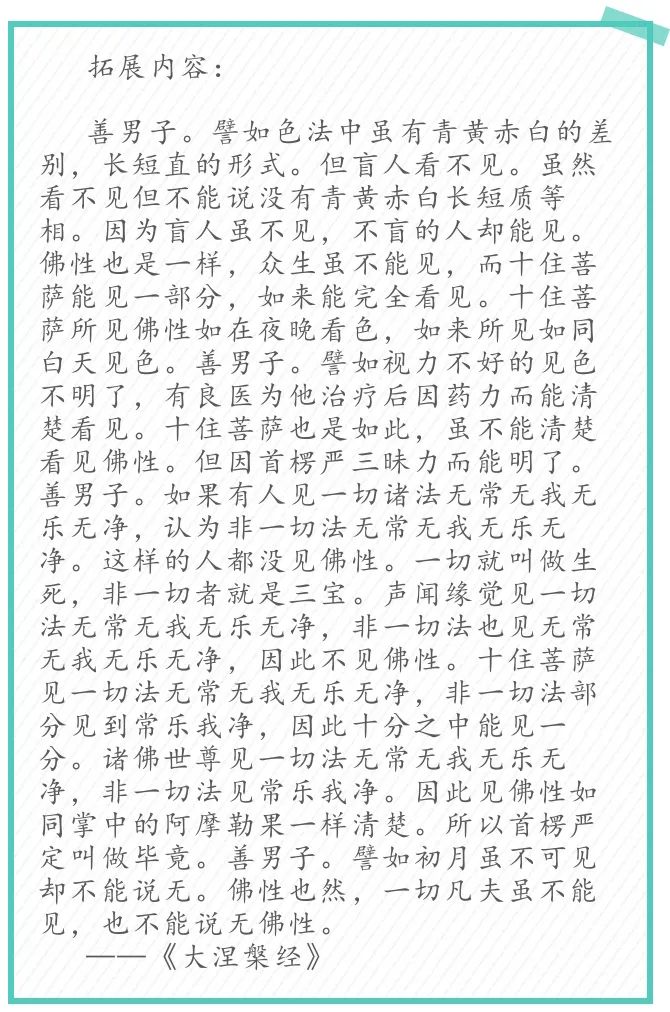 拓展内容：
善男子。譬如色法中虽有青黄赤白的差
别，长短直的形式。但盲人看不见。虽然
看不见但不能说没有青黄赤白长短质等
相。因为盲人虽不见，不盲的人却能见。
佛性也是一样，众生虽不能见，而十住菩
萨能见一部分，如来能完全看见。十住菩
萨所见佛性如在夜晚看色，如来所见如同
白天见色。善男子。譬如视力不好的见色
不明了，有良医为他治疗后因药力而能清
楚看见。十住菩萨也是如此，虽不能清楚
看见佛性。但因首楞严三昧力而能明了。
善男子。如果有人见一切诸法无常无我无
乐无净，认为非一切法无常无我无乐无
净。这样的人都没见佛性。一切就叫做生
死，非一切者就是三宝。声闻缘觉见一切
法无常无我无乐无净，非一切法也见无常
无我无乐无净，因此不见佛性。十住菩萨
见一切法无常无我无乐无净，非一切法部
分见到常乐我净，因此十分之中能见一
分。诸佛世尊见一切法无常无我无乐无
净，非一切法见常乐我净。因此见佛性如
同掌中的阿摩勒果一样清楚。所以首楞严
定叫做毕竟。善男子。譬如初月虽不可见
却不能说无。佛性也然，一切凡夫虽不能
见，也不能说无佛性。
——《大涅槃经》